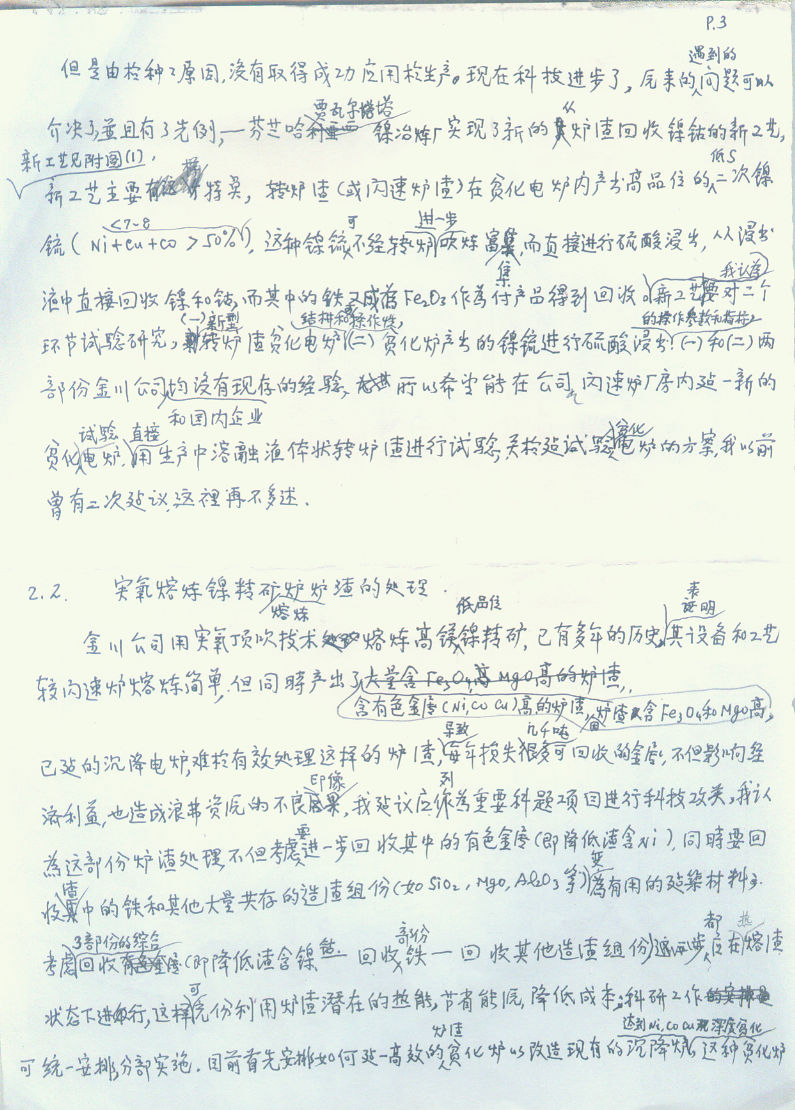 P.3
但是由於种种原因,没有取得成功应用於生产。现在科技进步了,原来的遇到的问题可以
介决了,並且有了先例,一芬兰哈贾瓦尔塔 镍冶炼厂实现了新的从炉渣回收镍钴的新工艺,
新工艺见附图(1).
新工艺主要特点,转炉渣(或闪速炉渣)在贫化电炉内产出高品位的低S二次镍
锍(Ni+Cu+Co >50%),<7~8 这种镍锍可不经转炉进一步吹炼富集,而直接进行硫酸浸出,从浸出
液中直接回收镍和钴,而其中的铁又成為Fe₂O₃作為付产品得到回收。我认為新工艺要对二个
环节试验研究,(一)新型转炉渣贫化电炉结构和操作的操作参数和指标(二)贫化炉产出的镍锍进行硫酸浸出!(一)和(二)两
部份金川公司和国内企业均没有现存的经验,所以希望能在公司闪速炉厂房内建一新的
贫化试验电炉.直接用生产中溶融液体状转炉渣进行试验,关於建试验贫化电炉的方案,我以前
曾有二次建议,这裡再不多述.
2.2. 奥氧熔炼镍精矿熔炼炉炉渣的处理.
金川公司用奥氧顶吹技术熔炼高镁低品位镍精矿,已有多年的历史,表证明其设备和工艺
较闪速炉熔炼简单,但同時产出了大量含Fe₃O₄高MgO高的炉渣,
含有色金属(Ni,Co Cu)高的炉渣,炉渣含Fe₃O₄和MgO高,
已建的沉降电炉,难於有效处理这样的炉渣,导致每年损失几千吨很多可回收的金属,不但影响经
济利益,也造成浪费资源的不良印像,我建议应列作為重要科题项目进行科技攻关,我认
為这部份炉渣处理,不但考虑要进一步回收其中的有色金属(即降低渣含Ni),同時要回
收渣中的铁和其他大量共存的造渣组份(如SiO₂,MgO,Al₂O₃等)变為有用的建築材料.
考虑3部份的综合回收(即降低渣含镍—回收部份铁—回收其他造渣组份)都应在热熔渣
状态下进行,这样可充份利用炉渣潜在的热能,节省能源,降低成本;科研工作
可统一安排,分部实施.目前首先安排如何建一高效的炉渣贫化炉以改造现有的沉降炉,达到Ni,Co Cu深度贫化 这种贫化炉